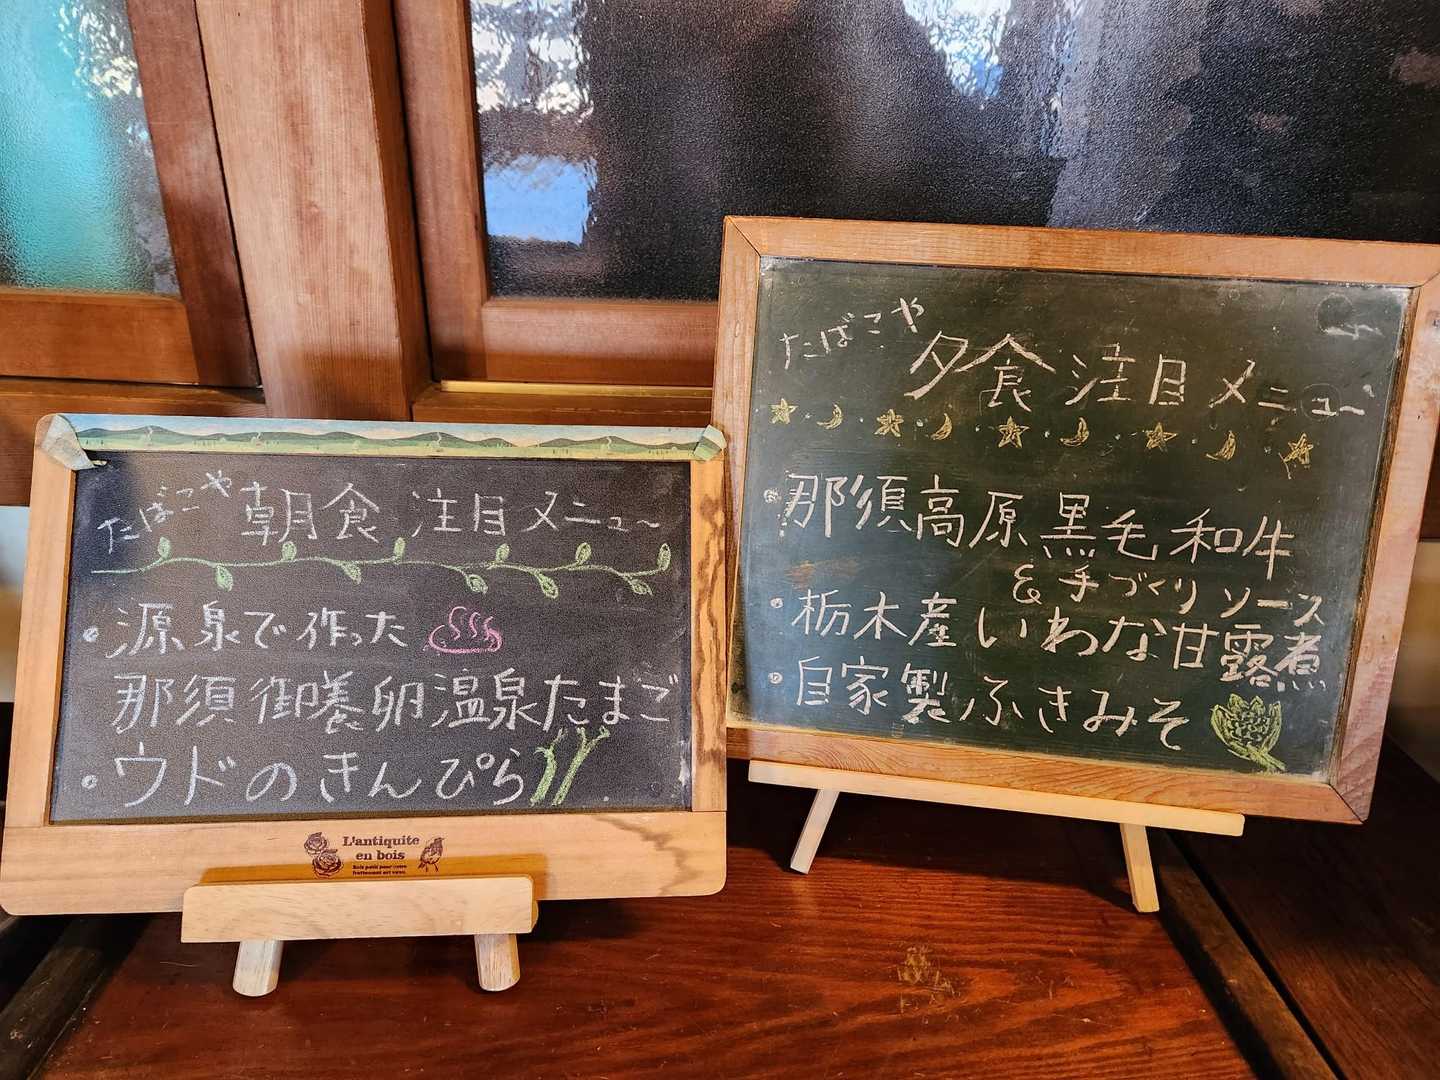 たばこや 朝食 注目メニュ～
・源泉で作った
那須御養卵温泉たまご
・ウドのきんぴら
L'antiquite
en bois
たばこや
夕食 注目メニュ～
・那須高原 黒毛和牛
& 手づくりソース
・栃木産いわな甘露煮
・自家製ふきみそ